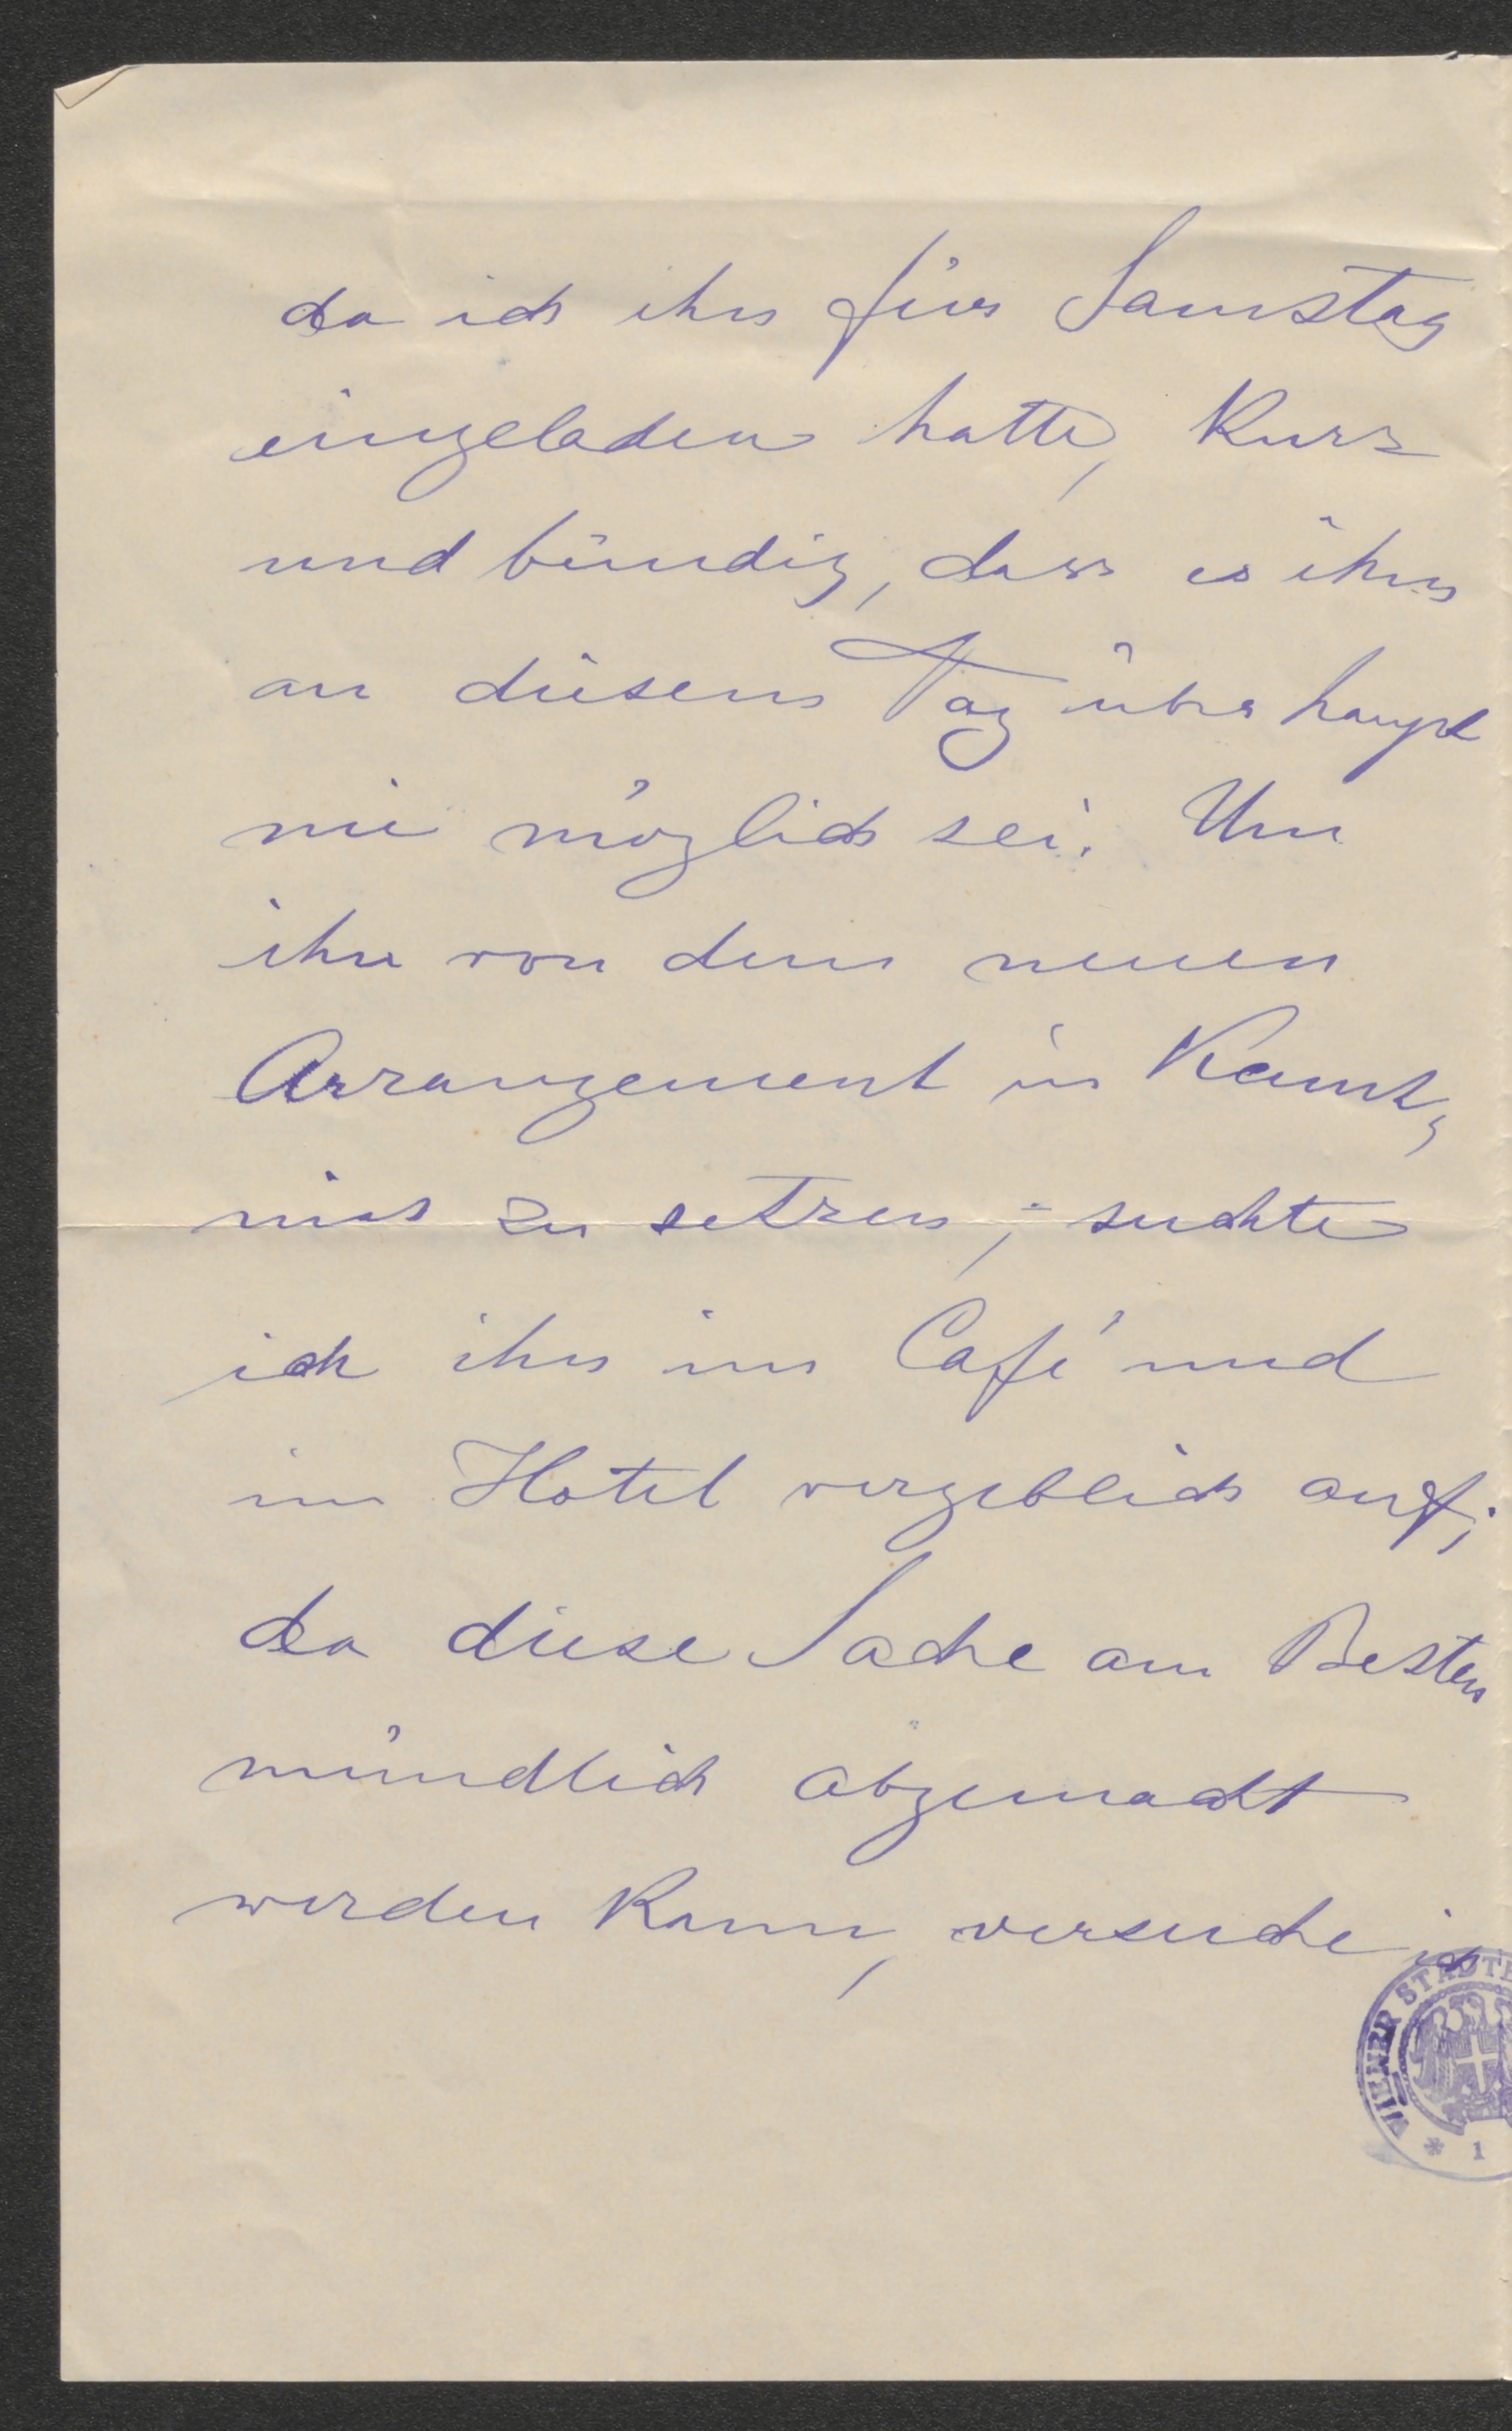 da ich ihn für Samstag
eingeladen hatte, kurz
und bündig, dass es ihm
an diesem Tag überhaupt
nie möglich sei. Um
ihn von dem neuen
Arrangement in Kennt-
nis zu setzen, suchte
ich ihn im Café und
im Hotel vergeblich auf;
da diese Sache am Besten
mündlich abgemacht
werden kann, versuche ich
WIENER STADTB
* 1